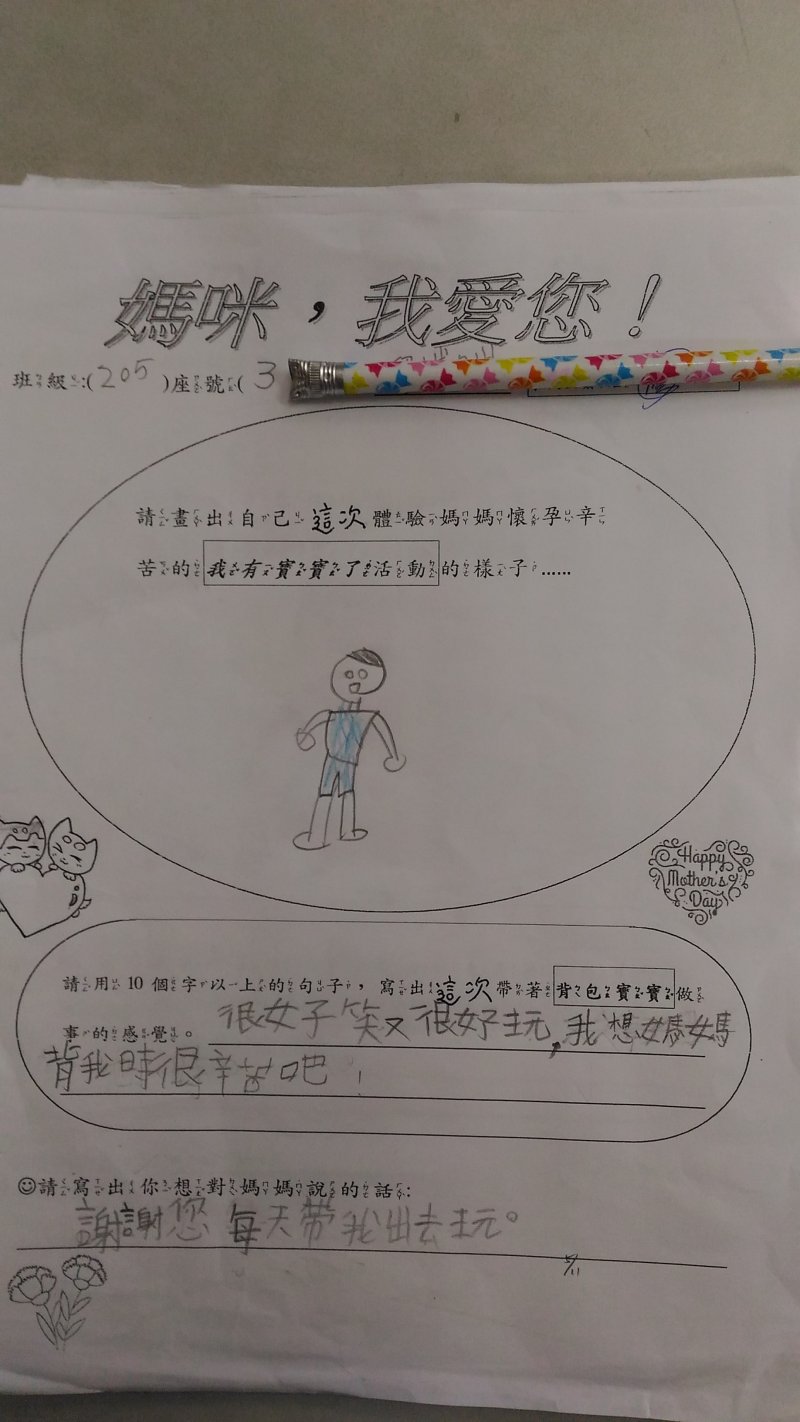 媽咪，我愛您！
班級:(205)座號(3
請畫出自己這次體驗媽媽懷孕辛
苦的我有寶寶了活動的樣子……
Happy
Mother's
Day
請用10個字以上的句子，寫出這次帶著背包寶寶做
事的感覺。很好笑又很好玩,我想媽媽
背我時很辛苦吧！
☺請寫出你想對媽媽說的話:
謝謝您每天帶我出去玩。
5/11